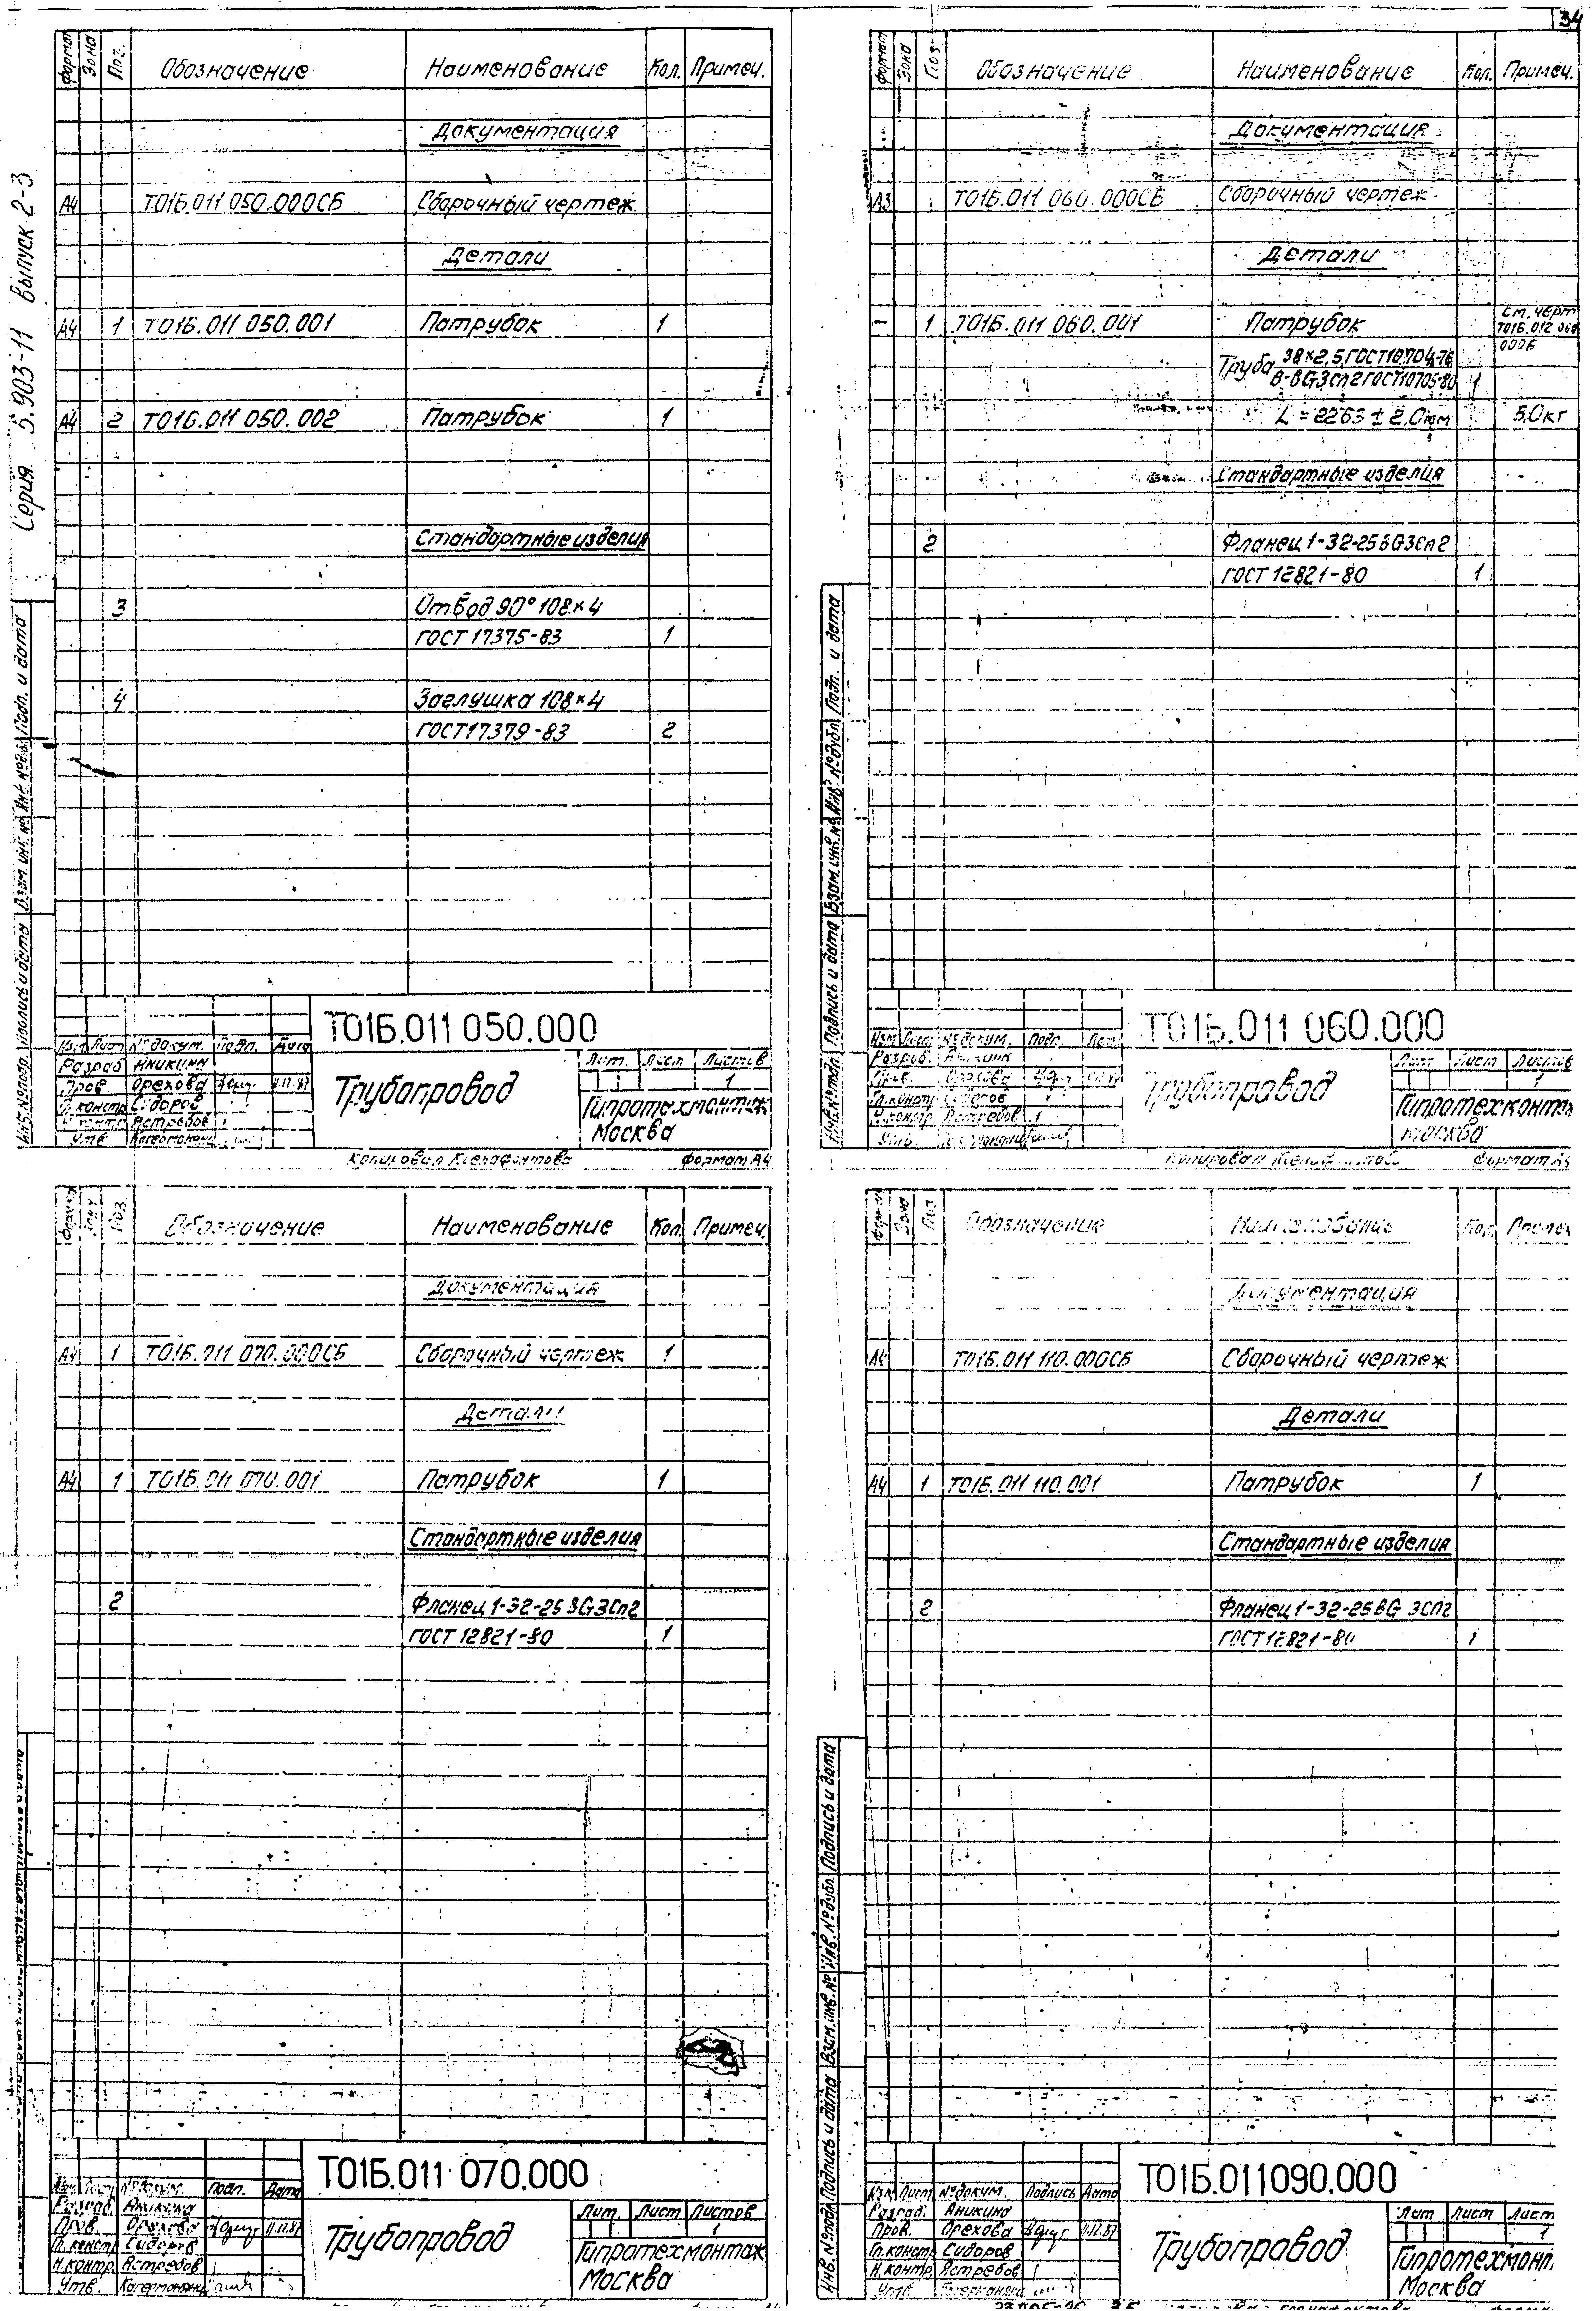 34
Серия 5.903-11 Выпуск 2-3
Формат Зона Поз. Обозначение Наименование Кол. Примеч.
Документация
А4 Т01Б.011 050.000СБ Сборочный чертеж
Детали
А4 1 Т01Б.011 050.001 Патрубок 1
А4 2 Т01Б.011 050.002 Патрубок 1
Стандартные изделия
3 Отвод 90° 108×4
ГОСТ 17375-83 1
4 Заглушка 108×4
ГОСТ 17379-83 2
Инв.№подл. Подпись и дата Взам. инв. № Инв. №дубл. Подп. и дата
Т01Б.011 050.000
Изм Лист №докум. Подп. Дата
Разраб Аникина
Пров Орехова 11.12.87
Гл.констр Сидоров
Н.контр Ястребов
Утв
Трубопровод
Лит. Лист Листов
1
Гипротехмонтаж
Москва
Копировал Ксенафонтова Формат А4
Формат Зона Поз. Обозначение Наименование Кол. Примеч.
Документация
А3 Т01Б.011 060.000СБ Сборочный чертеж
Детали
- 1 Т01Б.011 060.001 Патрубок См. черт
Т01Б.012 060
000Б
Труба 38×2,5 ГОСТ10704-76
В-ВСт3сп2 ГОСТ10705-80 1
L = 2263 ± 2,0мм 5,0кг
Стандартные изделия
2 Фланец 1-32-25 ВСт3сп2
ГОСТ 12821-80 1
Инв.№подл. Подпись и дата Взам.инв.№ Инв.№дубл. Подп. и дата
Т01Б.011 060.000
Изм Лист №докум. Подп. Дата
Разраб. Аникина
Пров. Орехова
Гл.констр Сидоров
Н.контр. Ястребов
Утв.
Трубопровод
Лит Лист Листов
1
Гипротехмонтаж
Москва
Копировал Формат А4
Формат Зону Поз. Обозначение Наименование Кол. Примеч.
Документация
А4 1 Т01Б.011 070.000СБ Сборочный чертеж 1
Детали
А4 1 Т01Б.011 070.001 Патрубок 1
Стандартные изделия
2 Фланец 1-32-25 ВСт3сп2
ГОСТ 12821-80 1
Т01Б.011 070.000
Изм. Лист №докум. Подп. Дата
Разраб. Аникина
Пров. Орехова 11.12.87
Гл.констр Сидоров
Н.контр. Ястребов
Утв
Трубопровод
Лит. Лист Листов
1
Гипротехмонтаж
Москва
Формат Зона Поз Обозначение Наименование Кол. Примеч
Документация
А4 Т01Б.011 110.000СБ Сборочный чертеж
Детали
А4 1 Т01Б.011 110.001 Патрубок 1
Стандартные изделия
2 Фланец 1-32-25 ВСт 3сп2
ГОСТ 12821-80 1
Инв.№подл. Подпись и дата Взам.инв.№ Инв.№дубл. Подпись и дата
Т01Б.011090.000
Изм. Лист №докум. Подпись Дата
Разраб. Аникина
Пров. Орехова 11.12.87
Гл.констр Сидоров
Н.контр. Ястребов
Утв.
Трубопровод
Лит Лист Лист
1
Гипротехмонт
Москва